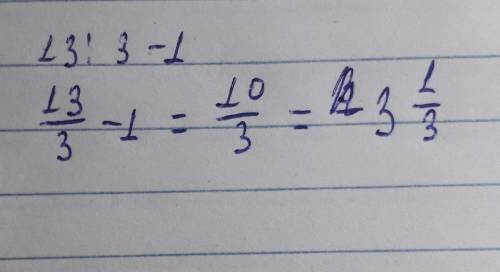 13: 3 -1
13/3 -1 = 10/3 = 3 1/3